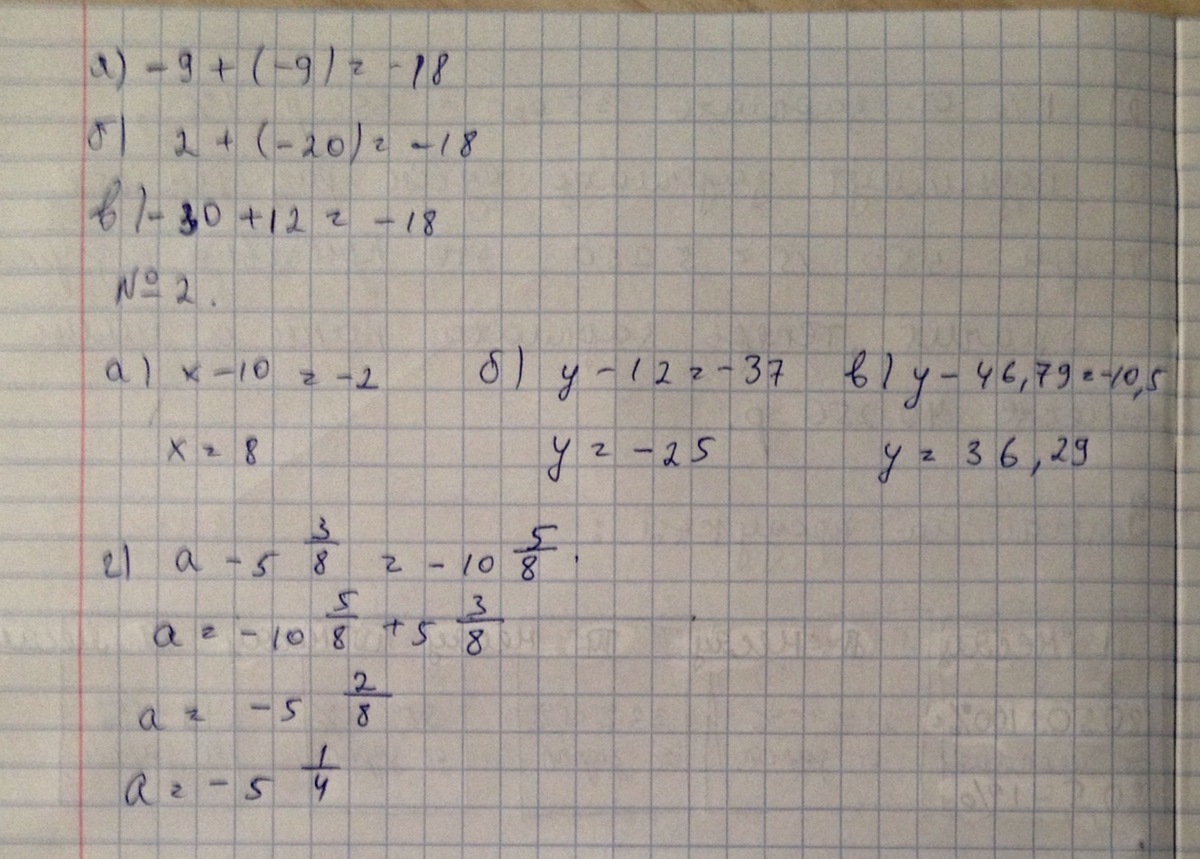 а) -9 + (-9) = -18
б) 2 + (-20) = -18
в) -30 + 12 = -18
№ 2.
а) x - 10 = -2 б) y - 12 = -37 в) y - 46,79 = -10,5
x = 8 y = -25 y = 36,29
г) a - 5 3/8 = -10 5/8.
a = -10 5/8 + 5 3/8
a = -5 2/8
a = -5 1/4